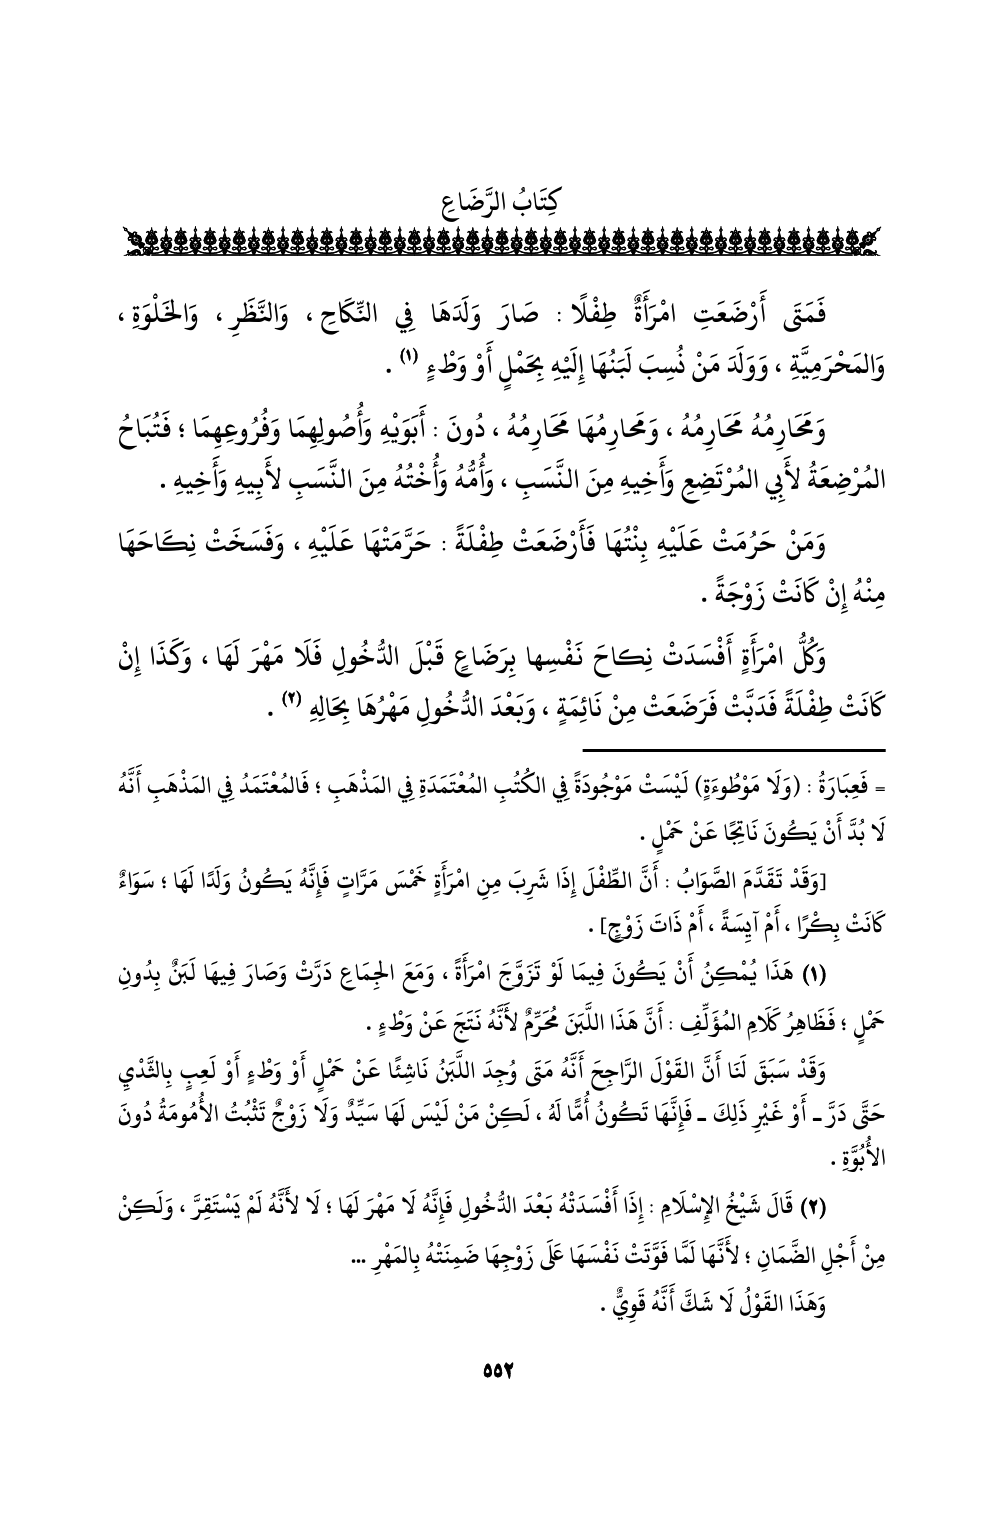 كِتَابُ الرَّضَاعِ
فَمَتَى أَرْضَعَتِ امْرَأَةٌ طِفْلًا : صَارَ وَلَدَهَا فِي النِّكَاحِ ، وَالنَّظَرِ ، وَالخَلْوَةِ ،
وَالمَحْرَمِيَّةِ ، وَوَلَدَ مَنْ نُسِبَ لَبَنُهَا إِلَيْهِ بِحَمْلٍ أَوْ وَطْءٍ (١) .
وَمَحَارِمُهُ مَحَارِمُهُ ، وَمَحارِمُهَا مَحَارِمُهُ ، دُونَ : أَبَوَيْهِ وَأُصُولِهِمَا وَفُرُوعِهِمَا ؛ فَتُبَاحُ
المُرْضِعَةُ لأَبِي المُرْتَضِعِ وَأَخِيهِ مِنَ النَّسَبِ ، وَأُمُّهُ وَأُخْتُهُ مِنَ النَّسَبِ لأَبِيهِ وَأَخِيهِ .
وَمَنْ حَرُمَتْ عَلَيْهِ بِنْتُهَا فَأَرْضَعَتْ طِفْلَةً : حَرَّمَتْهَا عَلَيْهِ ، وَفَسَخَتْ نِكَاحَهَا
مِنْهُ إِنْ كَانَتْ زَوْجَةً .
وَكُلُّ امْرَأَةٍ أَفْسَدَتْ نِكاحَ نَفْسِها بِرَضَاعٍ قَبْلَ الدُّخُولِ فَلَا مَهْرَ لَهَا ، وَكَذَا إِنْ
كَانَتْ طِفْلَةً فَدَبَّتْ فَرَضَعَتْ مِنْ نَائِمَةٍ ، وَبَعْدَ الدُّخُولِ مَهْرُهَا بِحَالِهِ (٢) .
= فَعِبَارَةُ : (وَلَا مَوْطُوءَةٍ) لَيْسَتْ مَوْجُودَةً فِي الكُتُبِ المُعْتَمَدَةِ فِي المَذْهَبِ ؛ فَالمُعْتَمَدُ فِي المَذْهَبِ أَنَّهُ
لَا بُدَّ أَنْ يَكُونَ نَاتِجًا عَنْ حَمْلٍ .
[وَقَدْ تَقَدَّمَ الصَّوَابُ : أَنَّ الطِّفْلَ إِذَا شَرِبَ مِنِ امْرَأَةٍ خَمْسَ مَرَّاتٍ فَإِنَّهُ يَكُونُ وَلَدًا لَهَا ؛ سَوَاءٌ
كَانَتْ بِكْرًا ، أَمْ آيِسَةً ، أَمْ ذَاتَ زَوْجٍ] .
(١) هَذَا يُمْكِنُ أَنْ يَكُونَ فِيمَا لَوْ تَزَوَّجَ امْرَأَةً ، وَمَعَ الجِمَاعِ دَرَّتْ وَصَارَ فِيهَا لَبَنٌ بِدُونِ
حَمْلٍ ؛ فَظَاهِرُ كَلَامِ المُؤَلِّفِ : أَنَّ هَذَا اللَّبَنَ مُحَرِّمٌ لأَنَّهُ نَتَجَ عَنْ وَطْءٍ .
وَقَدْ سَبَقَ لَنَا أَنَّ القَوْلَ الرَّاجِحَ أَنَّهُ مَتَى وُجِدَ اللَّبَنُ نَاشِئًا عَنْ حَمْلٍ أَوْ وَطْءٍ أَوْ لَعِبٍ بِالثَّدْيِ
حَتَّى دَرَّ ـ أَوْ غَيْرِ ذَلِكَ ـ فَإِنَّهَا تَكُونُ أُمًّا لَهُ ، لَكِنْ مَنْ لَيْسَ لَهَا سَيِّدٌ وَلَا زَوْجٌ تَثْبُتُ الأُمُومَةُ دُونَ
الأُبُوَّةِ .
(٢) قَالَ شَيْخُ الإِسْلَامِ : إِذَا أَفْسَدَتْهُ بَعْدَ الدُّخُولِ فَإِنَّهُ لَا مَهْرَ لَهَا ؛ لَا لأَنَّهُ لَمْ يَسْتَقِرَّ ، وَلَكِنْ
مِنْ أَجْلِ الضَّمَانِ ؛ لأَنَّهَا لَمَّا فَوَّتَتْ نَفْسَهَا عَلَى زَوْجِهَا ضَمِنَتْهُ بِالمَهْرِ ...
وَهَذَا القَوْلُ لَا شَكَّ أَنَّهُ قَوِيٌّ .
٥٥٢